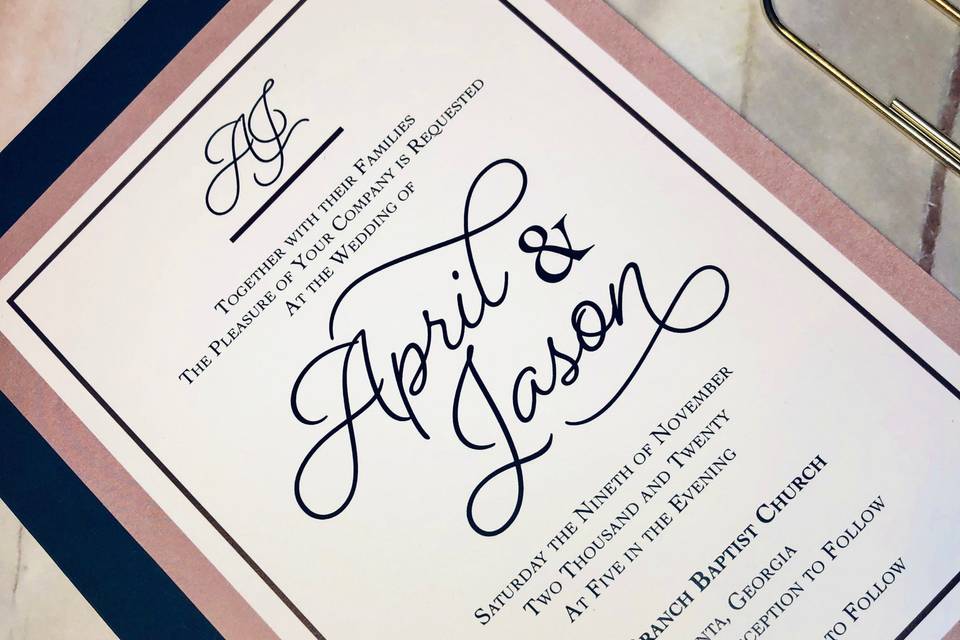 AJ
Together with their Families
The Pleasure of Your Company is Requested
At the Wedding of
April &
Jason
Saturday the Nineth of November
Two Thousand and Twenty
At Five in the Evening
Baptist Church
Georgia
to Follow
to Follow